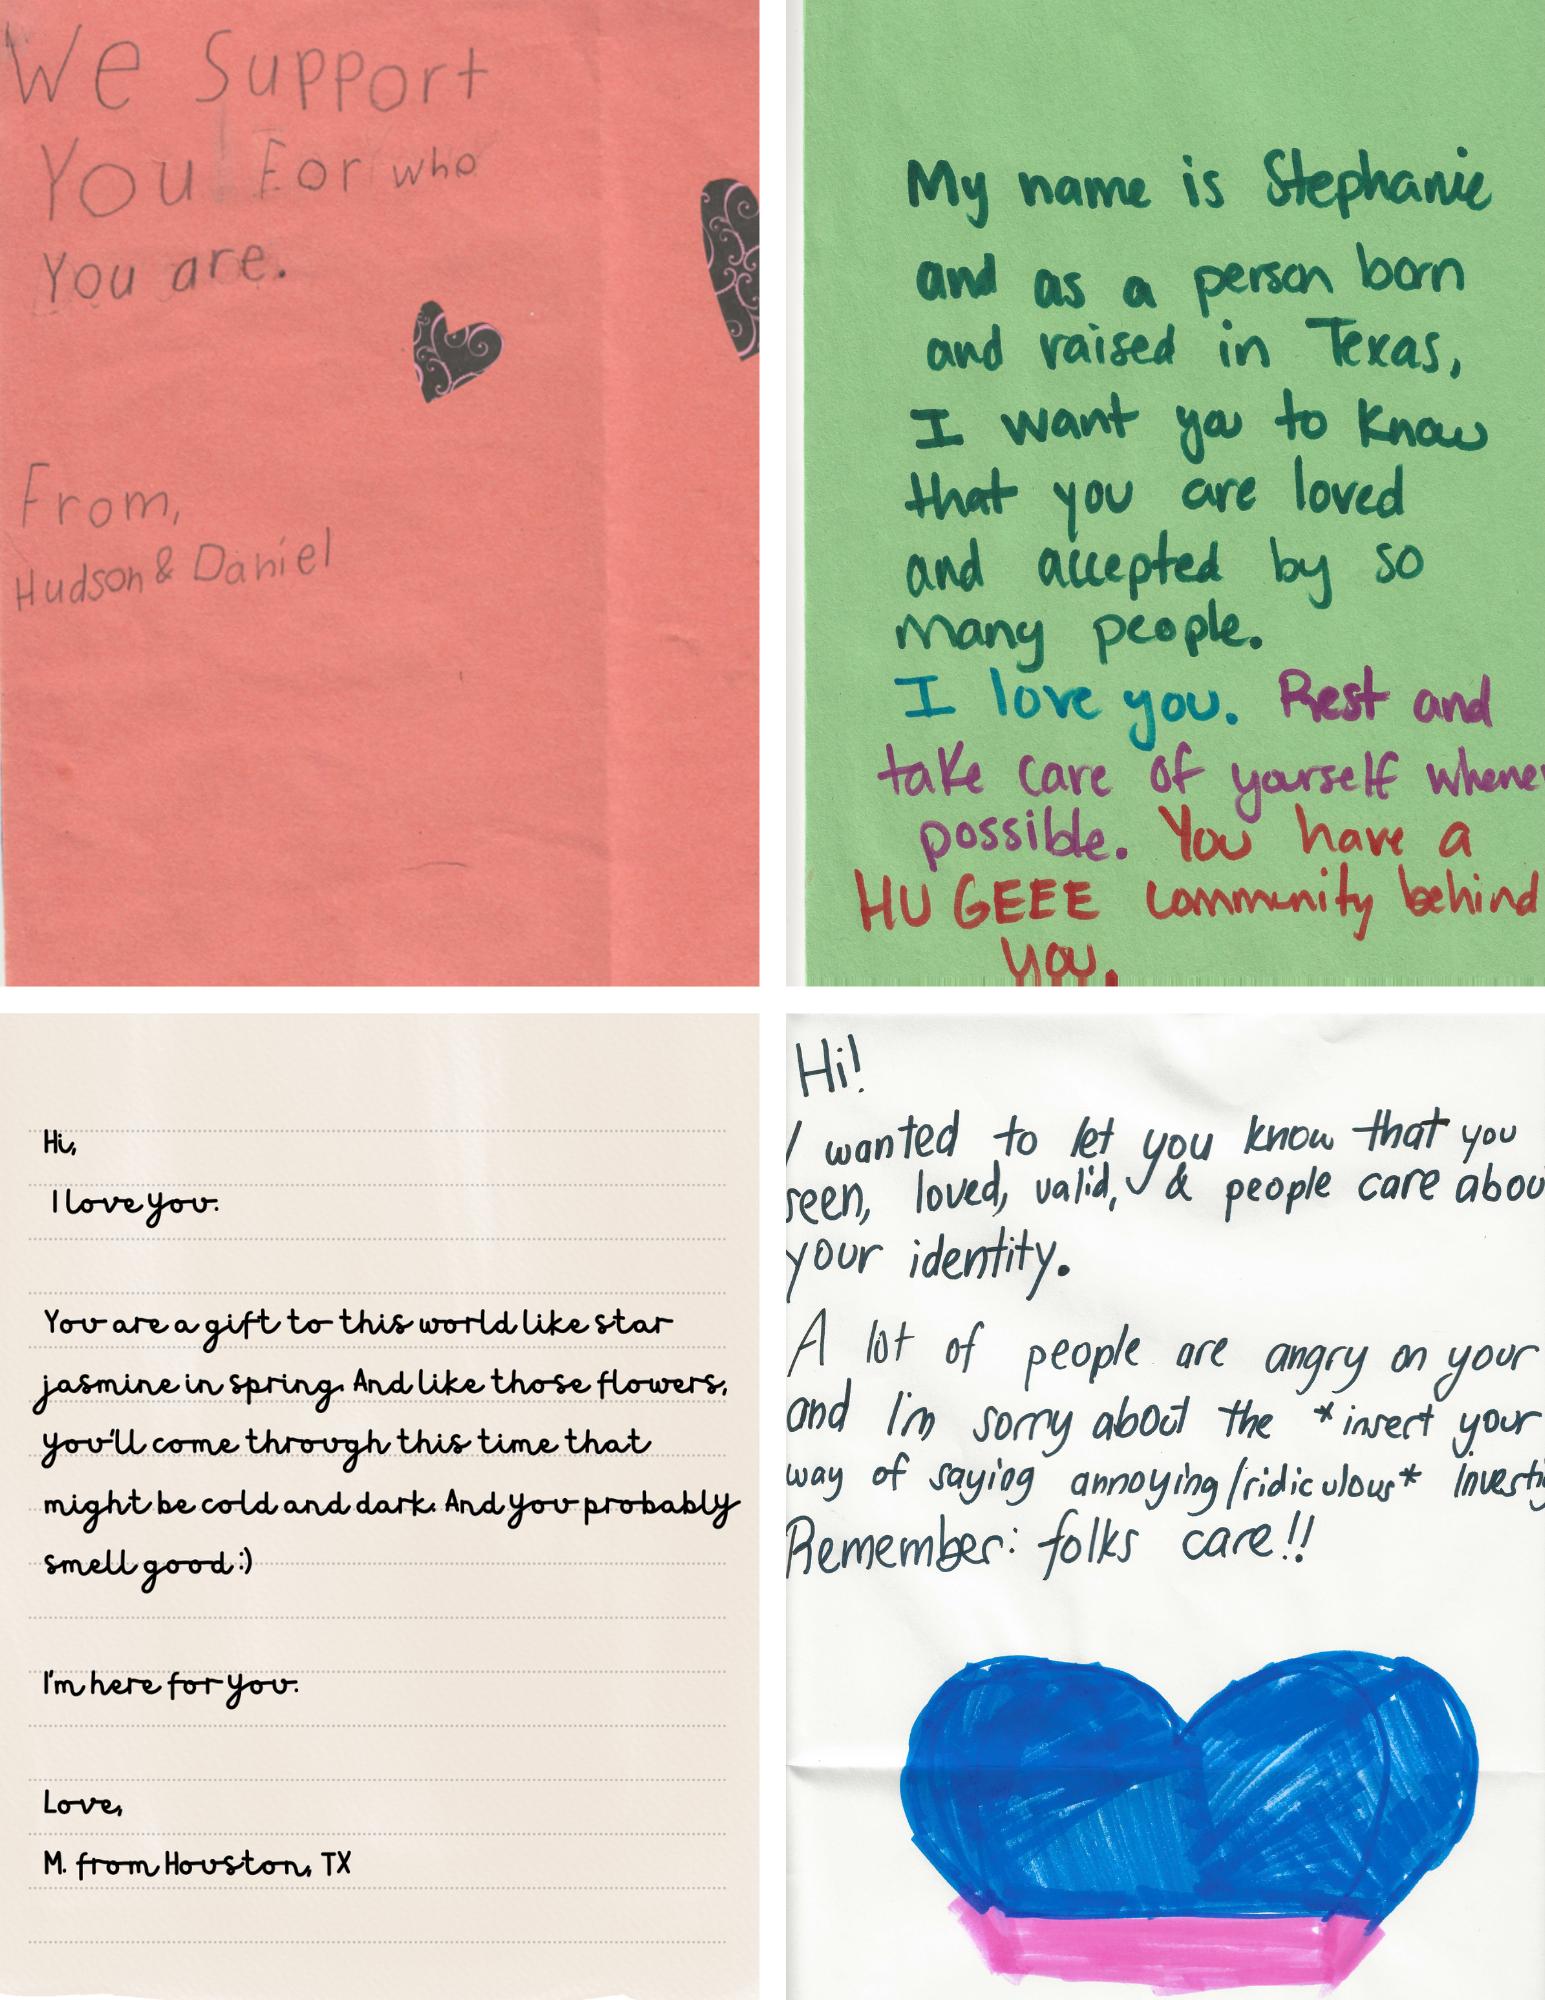 We Support
You For who
You are.
From,
Hudson & Daniel
My name is Stephanie
and as a person born
and raised in Texas,
I want you to know
that you are loved
and accepted by so
many people.
I love you. Rest and
take care of yourself whenev
possible. You have a
HUGEEE community behind
you.
Hi,
I love you.
You are a gift to this world like star
jasmine in spring. And like those flowers,
you'll come through this time that
might be cold and dark. And you probably
smell good :)
I'm here for you.
Love,
M. from Houston, TX
Hi!
I wanted to let you know that you
seen, loved, valid, & people care abou
your identity.
A lot of people are angry on your
and I'm sorry about the *insert your
way of saying annoying/ridiculous* Investi
Remember: folks care!!